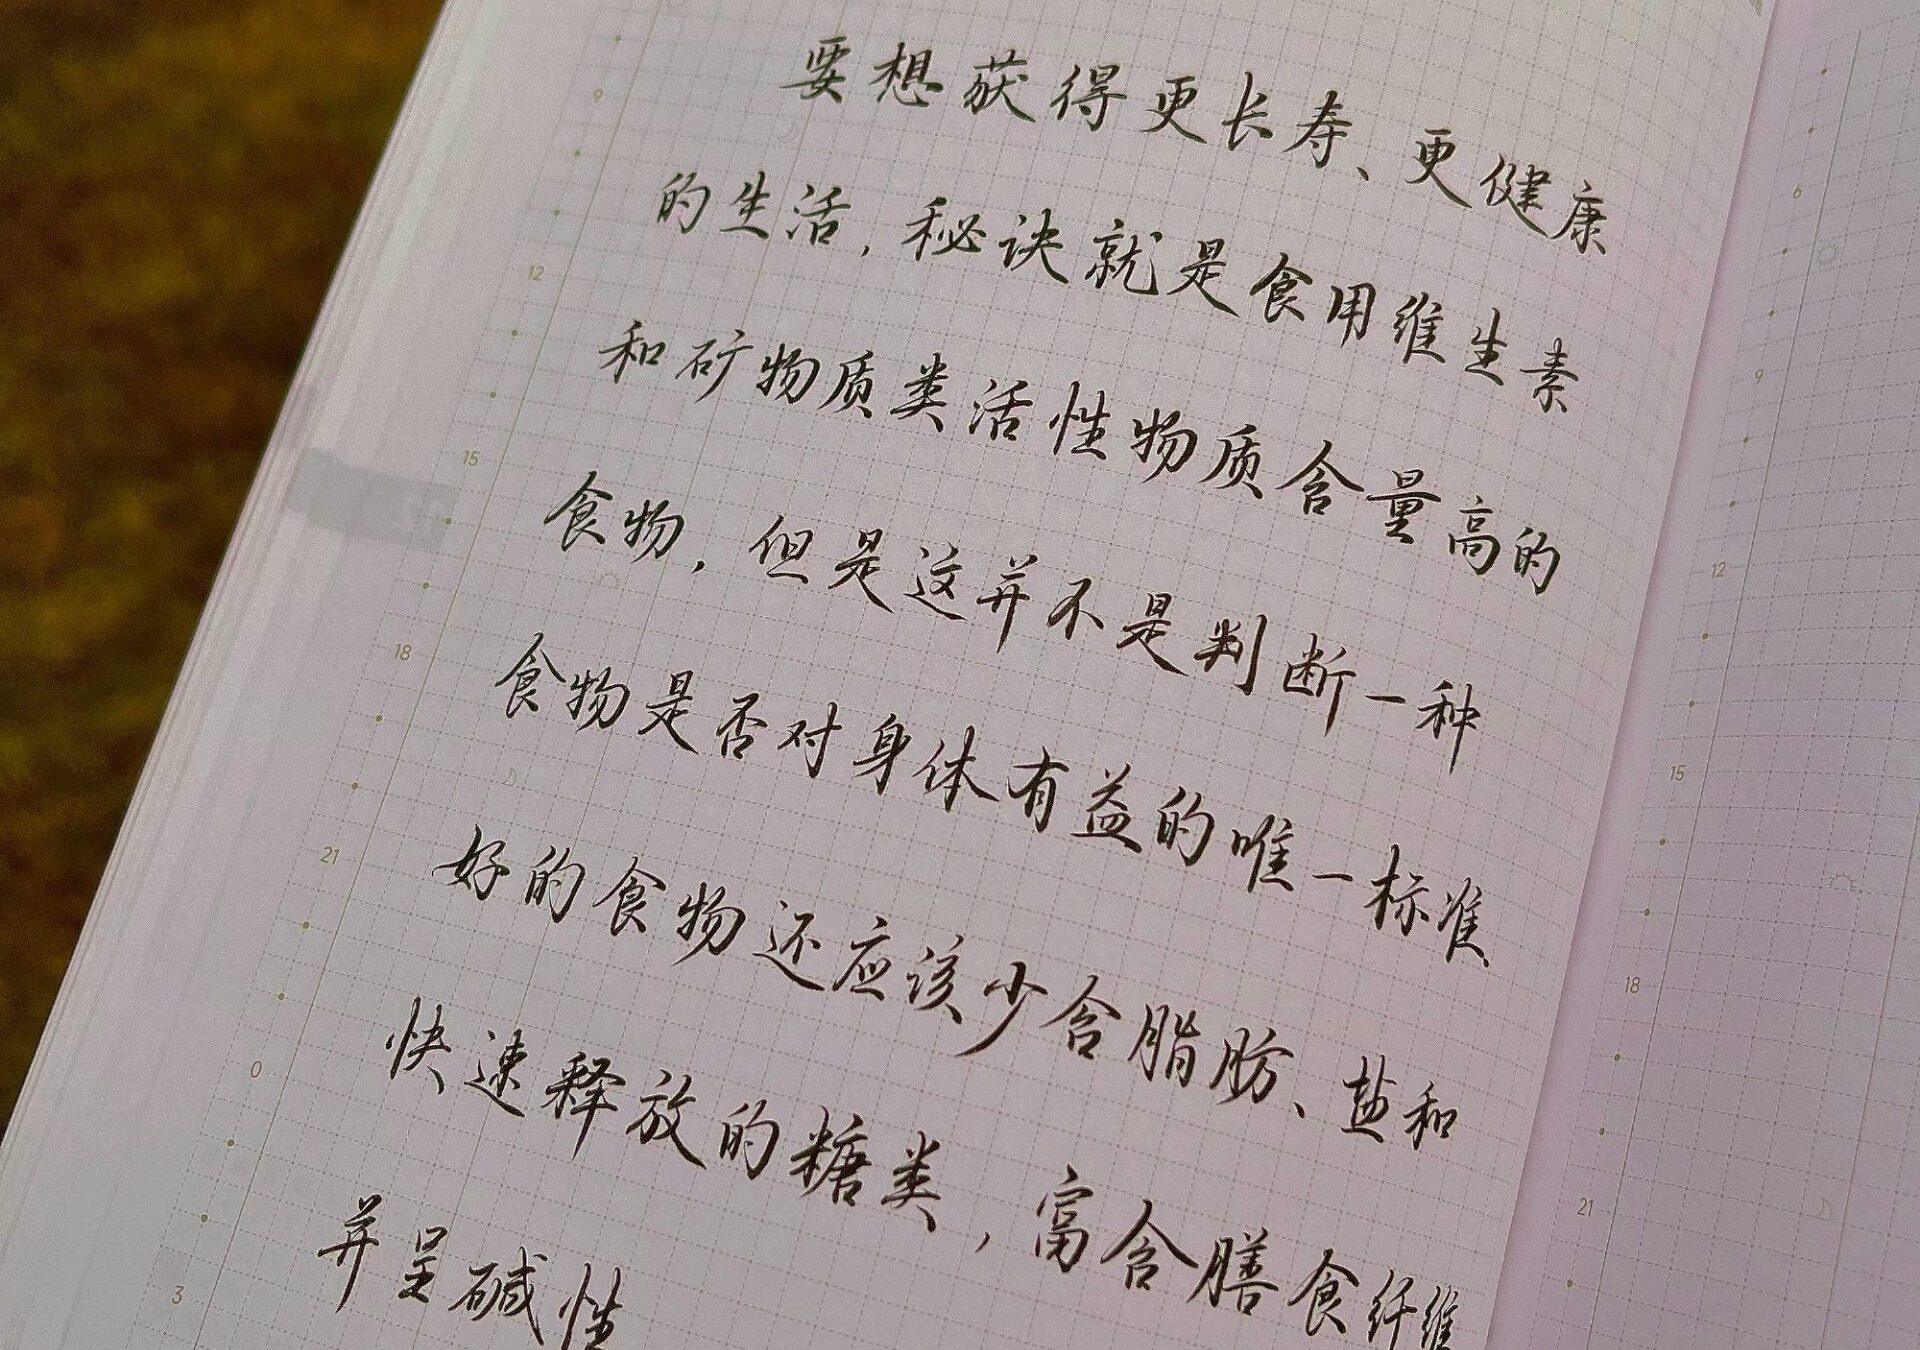 要想获得更长寿、更健康
的生活，秘诀就是食用维生素
和矿物质类活性物质含量高的
食物，但是这并不是判断一种
食物是否对身体有益的唯一标准、
好的食物还应该少含脂肪、盐和
快速释放的糖类，富含膳食纤维
并呈碱性
9
12
15
18
21
0
3
6
9
12
15
18
21